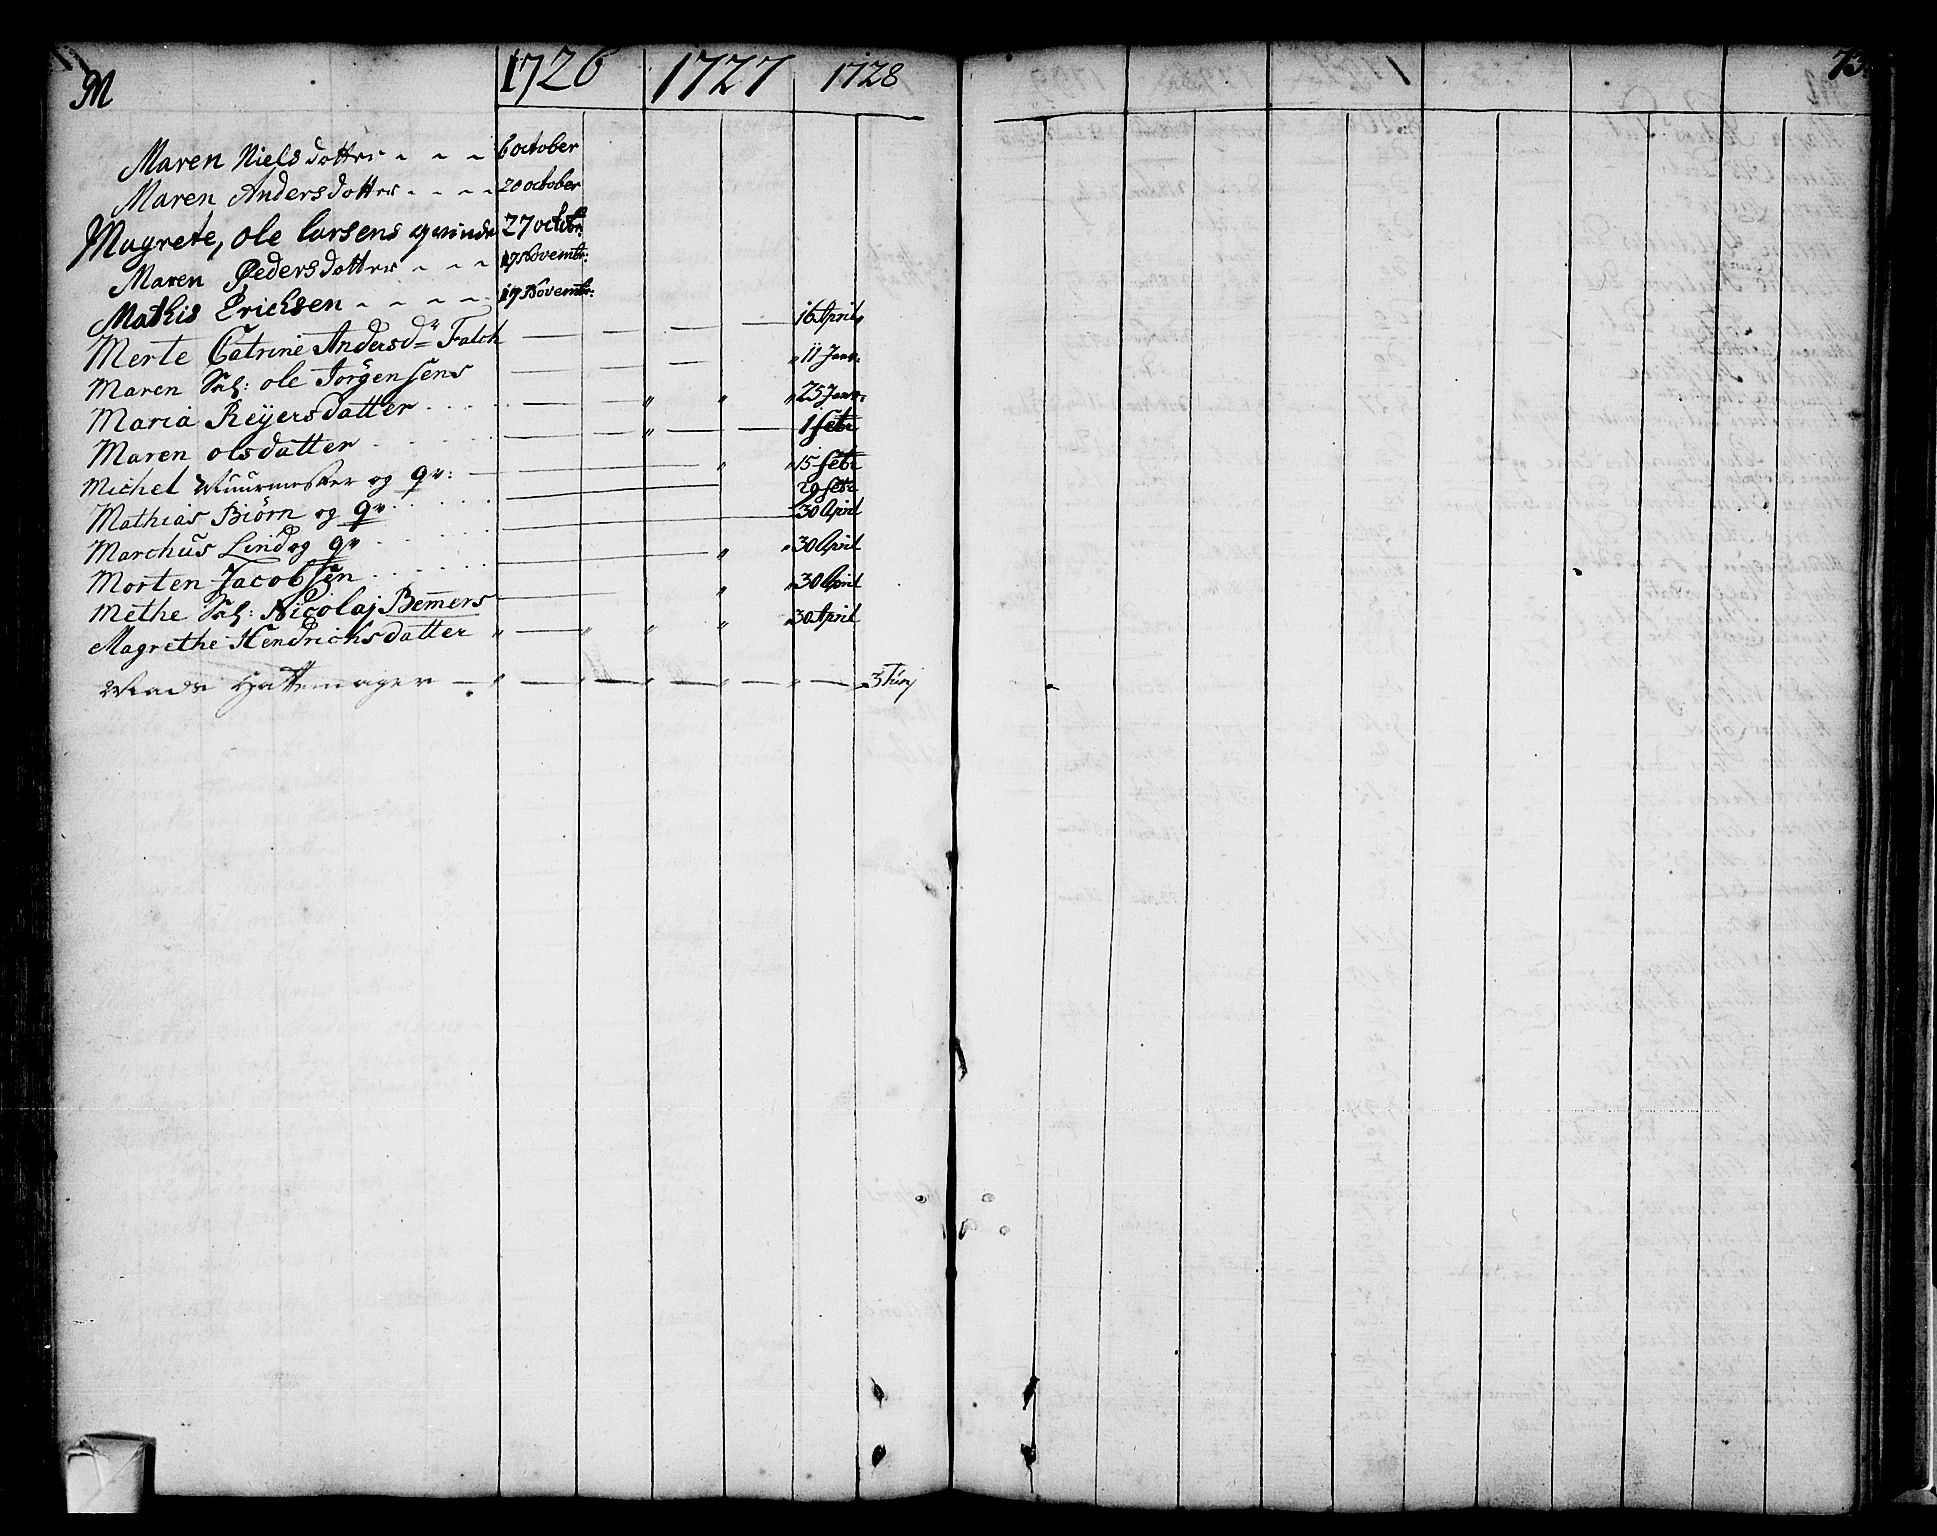 M 1726 1727 1728 73.
Maren Nielsdotter 6 october
Maren Andersdotter 20 october
Magrete, ole larsens qvinde 27 octobr:
Maren Pedersdotter 17 Novembr:
Mathis Erichsen 17 Novembr:
Merte Catrine Andersdr Falch 16 April
Maren Sal: ole Jörgensens 11 Janr.
Maria Reÿersdatter 25 Janr.
Maren olsdatter 1 febr
Michel Muurmester og qv: 15 febr
Mathias Biörn og qv 29 febr
Marchus Lind og qv 30 April
Morten Jacobsen 30 April
Methe Sal: Nicolaj Bem̄ers 30 April
Magrethe Hendrichsdatter 30 April
Mads Hattemager 3